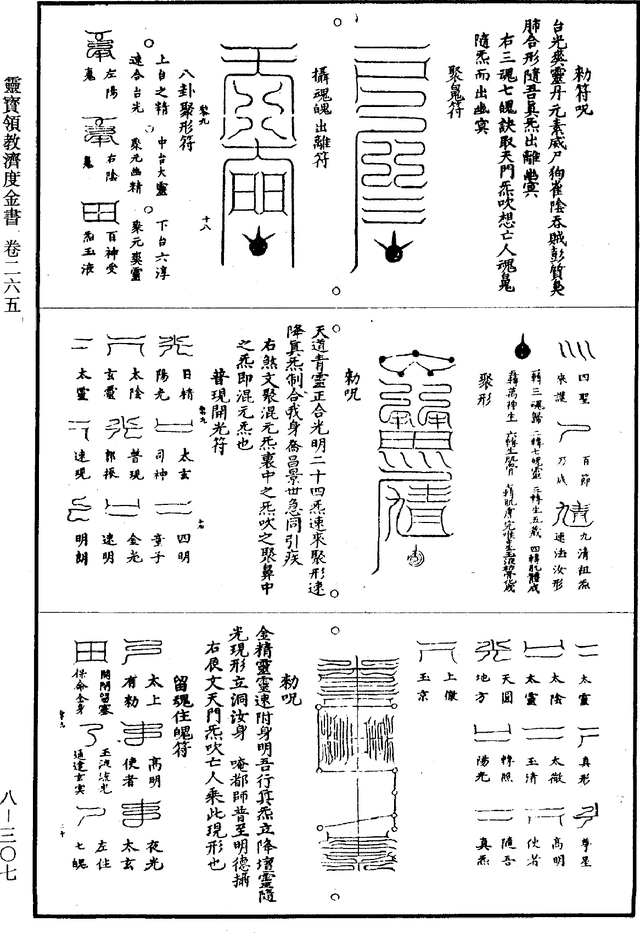 靈寶領教濟度金書 卷二六五
八—三〇七
勑符呪
台光爽靈丹元素威尸狗雀陰吞賊彭質臭
肺合形隨吾真炁出離幽冥
右三魂七魄訣取天門炁吹想亡人魂魄
隨炁而出幽冥
聚魄符
攝魂魄出離符
八卦聚形符
上台之精 中台大靈 下台六淳
速合台光 聚元幽精 聚元爽靈
左陽 右陰 百神受
炁玉液
四聖 百節 九清祖炁
來護 乃成 速法汝形
一轉三魂歸 二轉七魄靈 三轉生五藏 四轉肌體成
聚形
勑呪
天道青靈正合光明二十四炁速來聚形速
降真炁制合我身喬昌景世急同引疾
右煞文聚混元炁裏中之炁吹之聚鼻中
之炁即混元炁也
普現開光符
日精 太玄 四明
陽光 司神 童子
太陰 普現 金光
玄靈 郭振 速明
太靈 速現 明朗
太靈 真形 尊星
太陰 太微 高明
太靈 玉清 使者
天圓 轉照 隨吾
地方 陽光 真炁
上徹
玉京
勑呪
金精靈靈速附身明吾行真炁立降壇靈隨
光現形立洞汝身 唵都師普至明德攝
右辰文天門炁吹亡人乘此現形也
留魂住魄符
太上 高明 夜光
有勑 使者 太玄
開閉留塞 左住
保命全身 通達玄冥 七魄